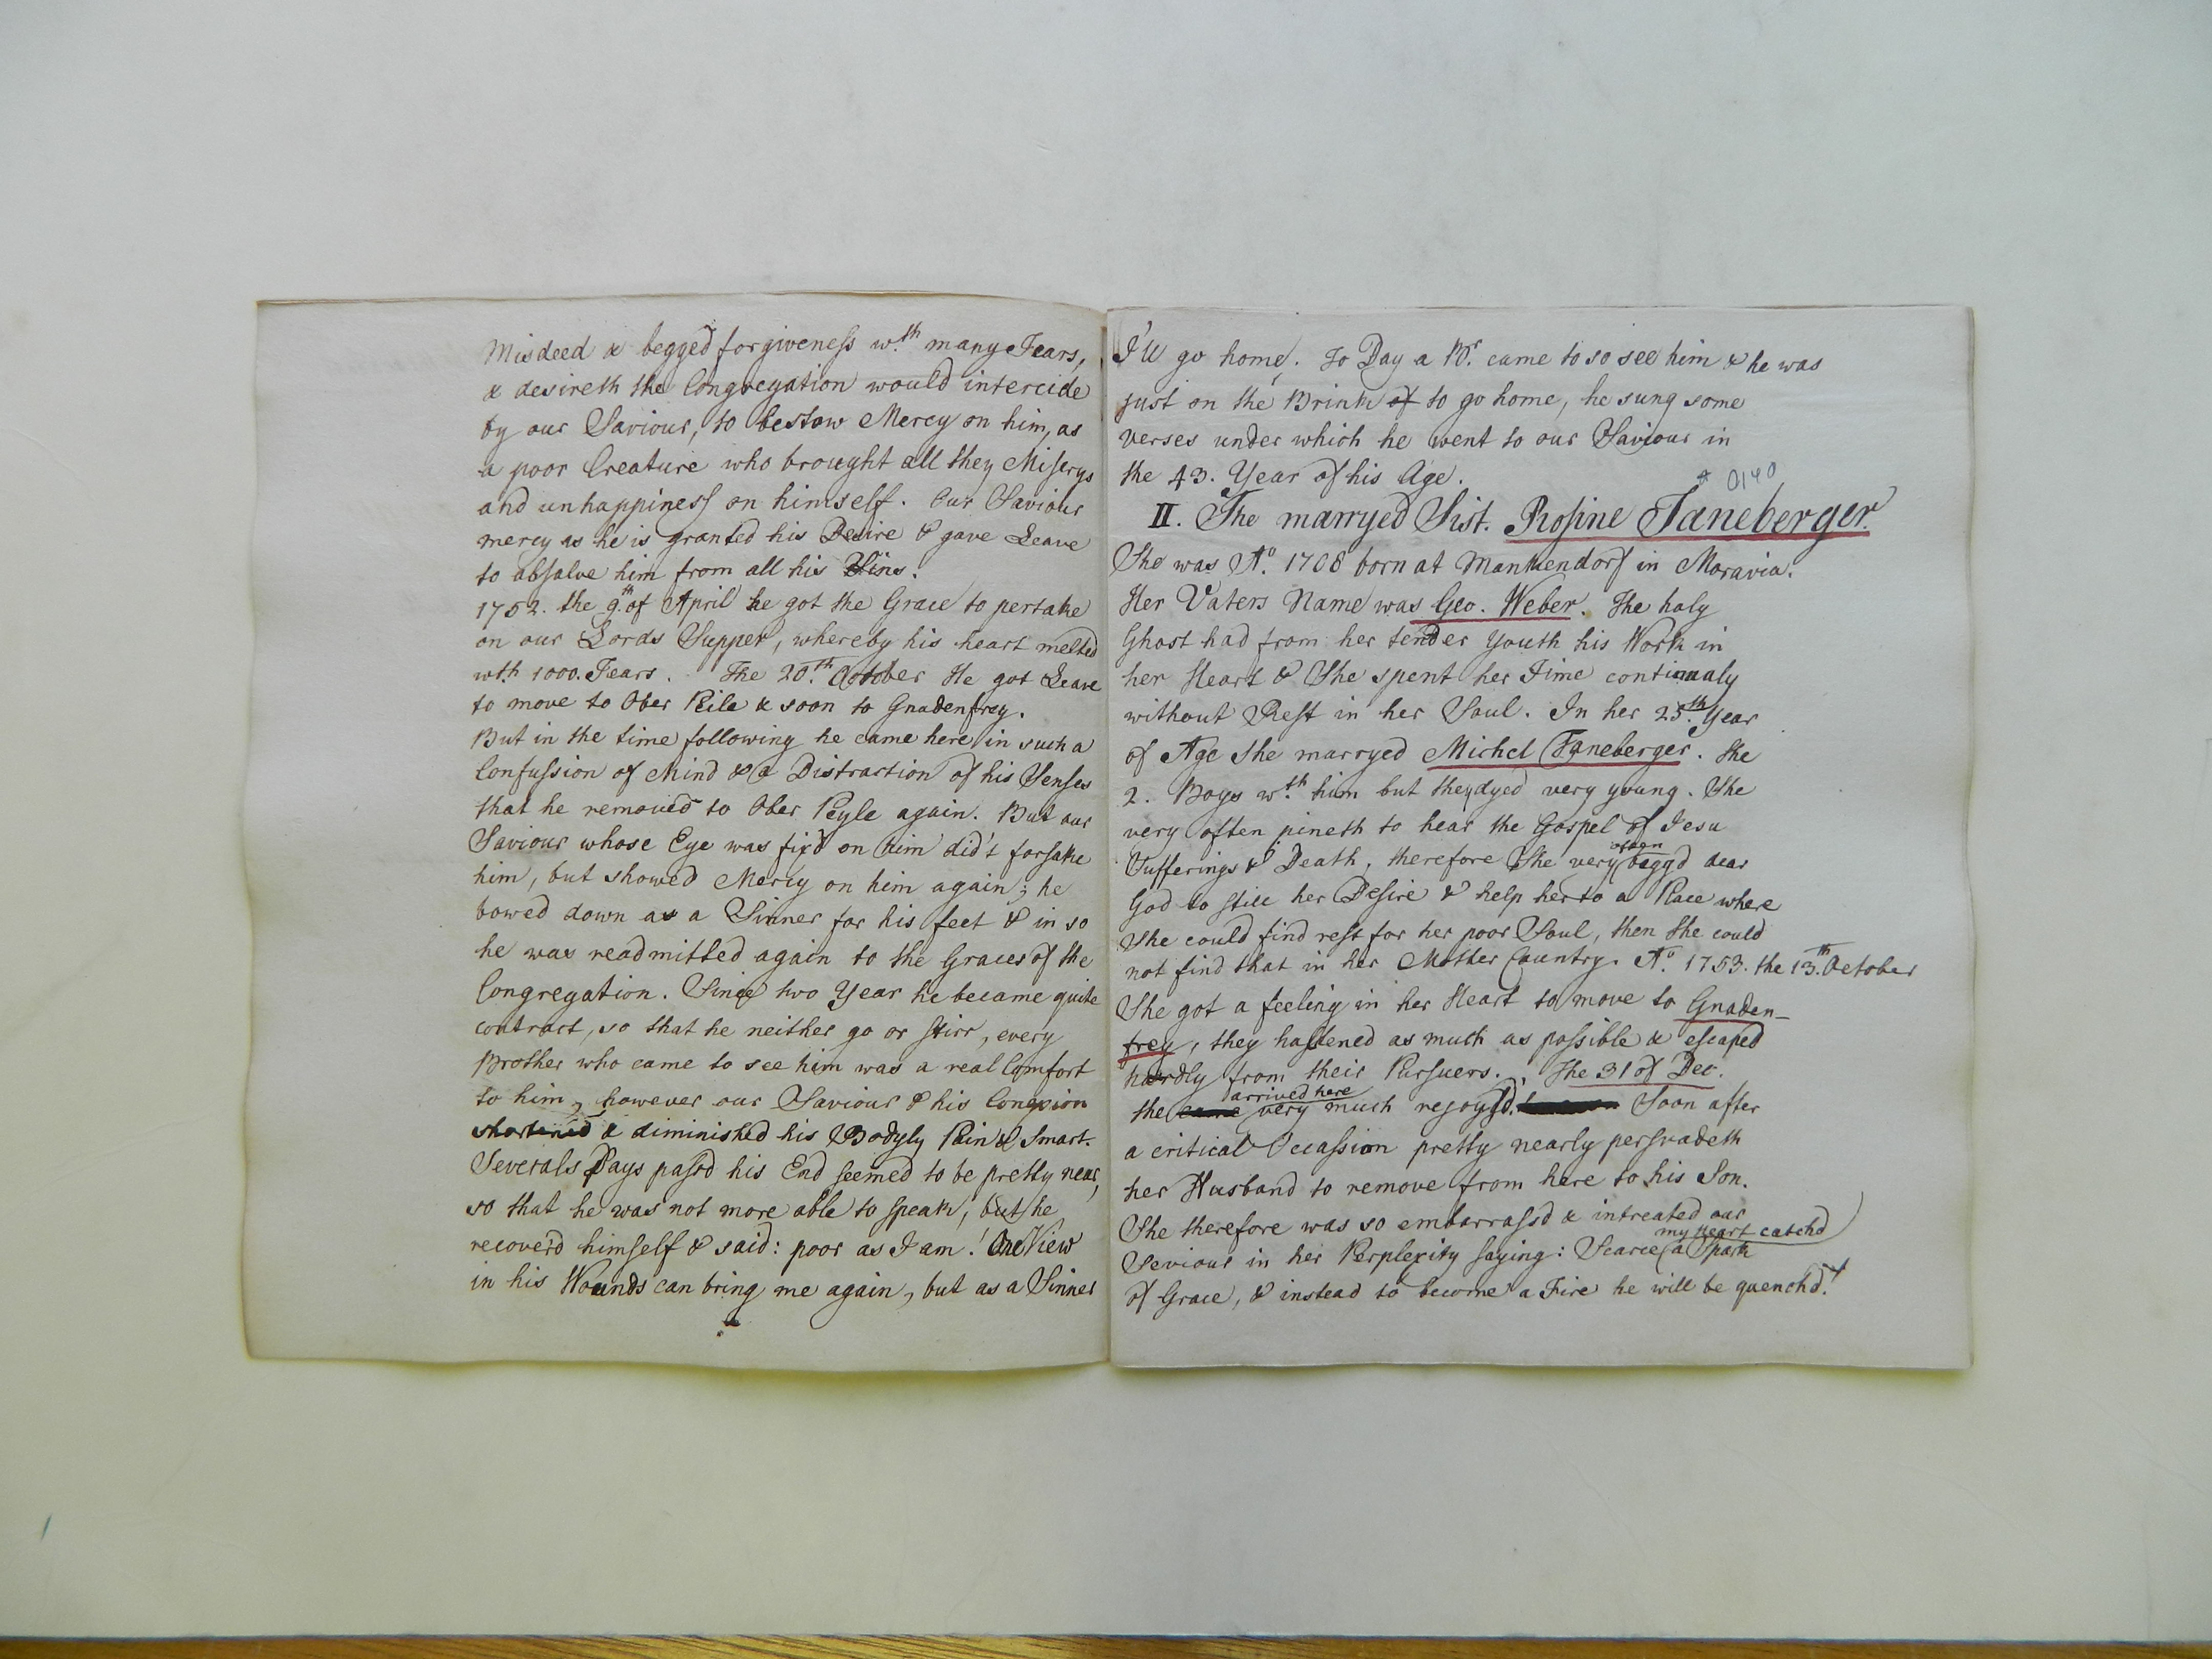 Misdeed & begged forgiveness w.th many Tears,
& desireth the Congregation would intercide
by our Saviour, to bestow Mercy on him, as
a poor Creature who brought all they Miserys
and unhappiness on himself. Our Saviour
mercy as he is granted his Desire & gave Leave
to absalve him from all his Sins.
1752. the 9.th of April he got the Grace to pertake
on our Lords Supper, whereby his heart melted
wth 1000. Tears. The 20.th October He got Leave
to move to Ober Peile & soon to Gnadenfrey.
But in the time following he came here in such a
Confussion of Mind & a Distraction of his Senses
that he removed to Ober Peyle again. But our
Saviour whose Eye was fix'd on him did't forsake
him, but showed Mercy on him again; he
bowed down as a Sinner for his feet & in so
he was readmitted again to the Graces of the
Congregation. Since two Year he became quite
contract, so that he neither go or stirr, every
Brother who came to see him was a real Comfort
to him, however our Saviour & his Conexion
shortened & diminished his Bodyly Pain & Smart.
Severals Days pass'd his End seemed to be pretty near,
so that he was not more able to speak, but he
recover'd himself & said: poor as I am! One View
in his Wounds can bring me again, but as a Sinner
I'll go home. To Day a Br. came to so see him & he was
just on the Brink of to go home, he sung some
verses under which he went to our Saviour in
the 43. Year of his Age.
0140
II. The marryed Sist. Rosine Janeberger.
She was Ao. 1708 born at Mankendorf in Moravia.
Her Vaters Name was Geo. Weber. The holy
Ghost had from her tender Youth his Work in
her Heart & She spent her Time continualy
without Rest in her Soul. In her 25.th Year
of Age She marryed Michel Janeberger. She
2. Boys w.th him but they dyed very young. She
very often pineth to hear the Gospel of Jesu
Sufferings & Death, therefore She very often begg'd dear
God to still her Desire & help her to a Place where
She could find rest for her poor Soul, then She could
not find that in her Mother Country. Ao. 1753. the 13.th October
She got a feeling in her Heart to move to Gnaden-
frey, they hastened as much as possible & escaped
hardly from their Pursuers. The 31 of Dec.
the came arrived here very much rejoysd. Soon after
a critical Occassion pretty nearly persvadeth
her Husband to remove from here to his Son.
She therefore was so embarrass'd & intreated our
Seviour in her Perplexity saying: Scarce my Heart catchd a Spark
of Grace, & instead to become a Fire he will be quenchd!